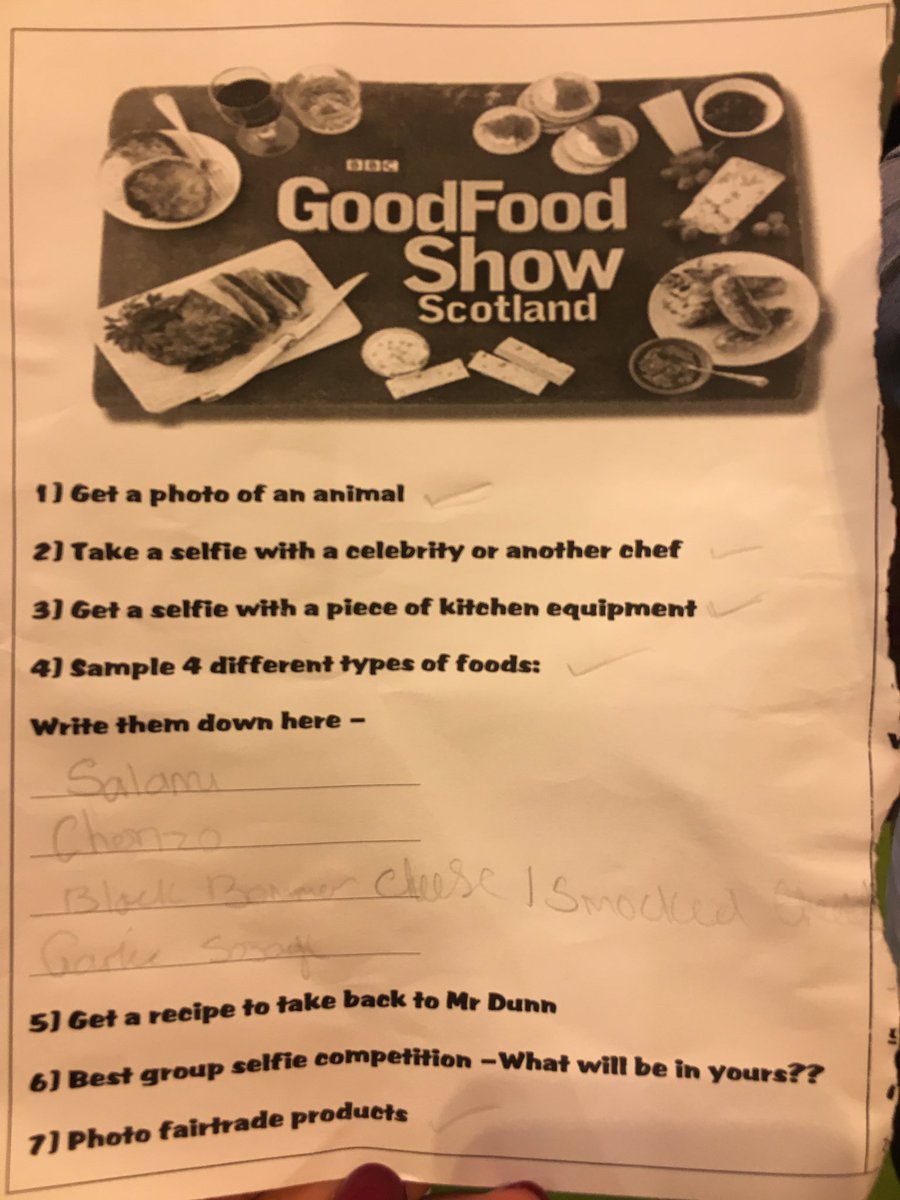 BBC
GoodFood
Show
Scotland
1) Get a photo of an animal
2) Take a selfie with a celebrity or another chef
3) Get a selfie with a piece of kitchen equipment
4) Sample 4 different types of foods:
Write them down here –
Salami
Chorizo
Black Bommer Cheese / Smocked
Garlic
5) Get a recipe to take back to Mr Dunn
6) Best group selfie competition –What will be in yours??
7) Photo fairtrade products